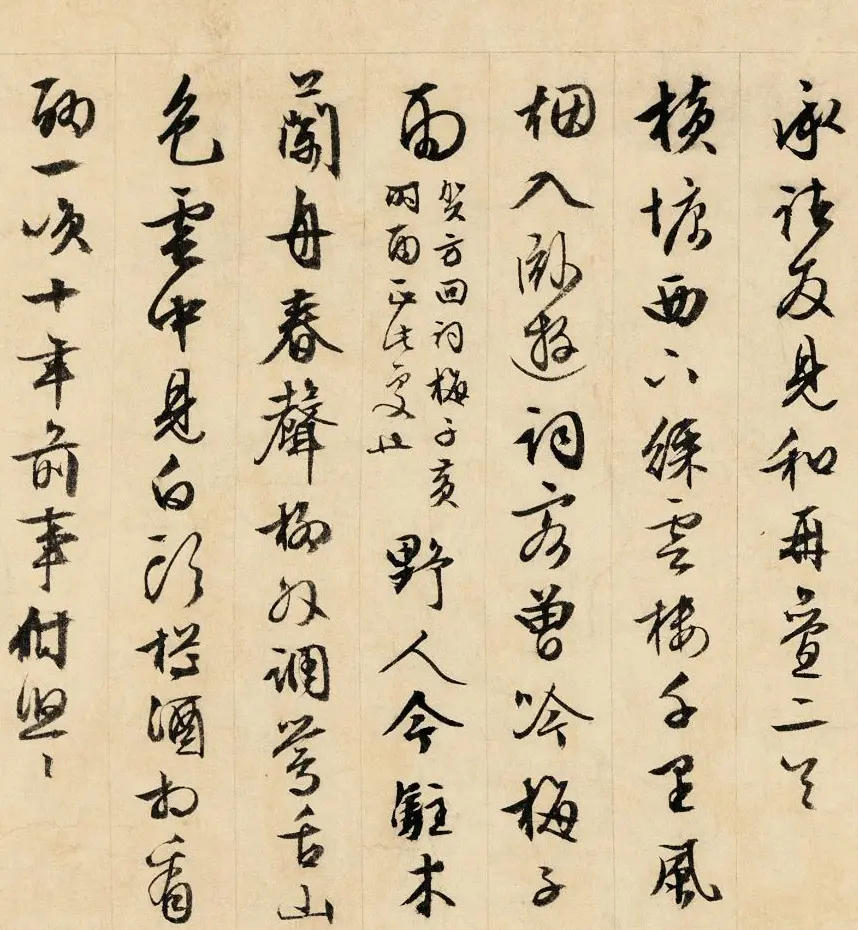 承諸友見和再疊二首
橫塘西下綠雲樓千里風
烟入臥遊詞客曾吟梅子
雨
賀方回詞梅子黃
時雨正此處也
野人今駐木
蘭舟春聲柳外調鶯舌山
色雲中見白頭樽酒相看
聊一咲十年前事付悠〻